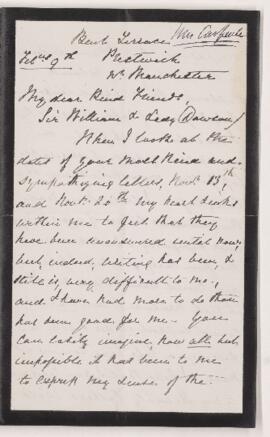 Bent Terrace Mrs Carpenter
Feby 9th Prestwich
Nr Manchester
My dear Kind Friends,
Sir William & Lady Dawson/
When I look at the
dates of your most kind and
sympathizing letters, Novr 13th,
and Novr 20th my heart sinks
within me to feel that they
have been unanswered until now,
but indeed, writing has been, &
still is, very difficult to me,
and I have had more to do than
has been good for me. You
can easily imagine, how all but
impossible it has been to me
to express my sense of the